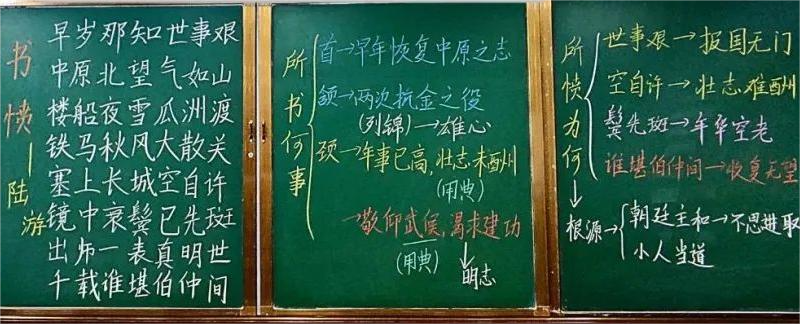 书愤—陆游
早岁那知世事艰
中原北望气如山
楼船夜雪瓜洲渡
铁马秋风大散关
塞上长城空自许
镜中衰鬓已先斑
出师一表真明世
千载谁堪伯仲间
所书何事
首→早年恢复中原之志
颔→两次抗金之役
(列锦)→雄心
颈→年事已高,壮志未酬
(用典)
→敬仰武侯,渴求建功
(用典)
明志
所愤为何
世事艰→报国无门
空自许→壮志难酬
鬓先斑→年华空老
谁堪伯仲间→恢复无望
根源→
朝廷主和→不思进取
小人当道